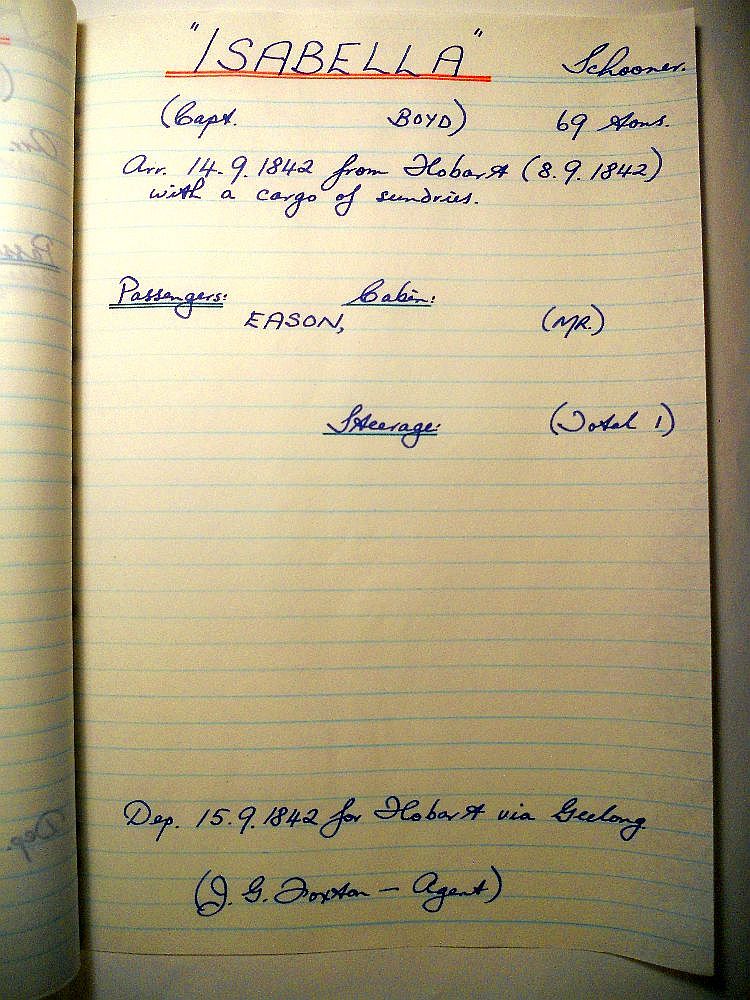 "ISABELLA" Schooner.
(Capt. BOYD) 69 tons.
Arr. 14.9.1842 from Hobart (8.9.1842)
with a cargo of sundries.
Passengers: Cabin:
EASON, (MR.)
Steerage: (Total 1)
Dep. 15.9.1842 for Hobart via Geelong
(J. G. Foxton — Agent)
Dep.